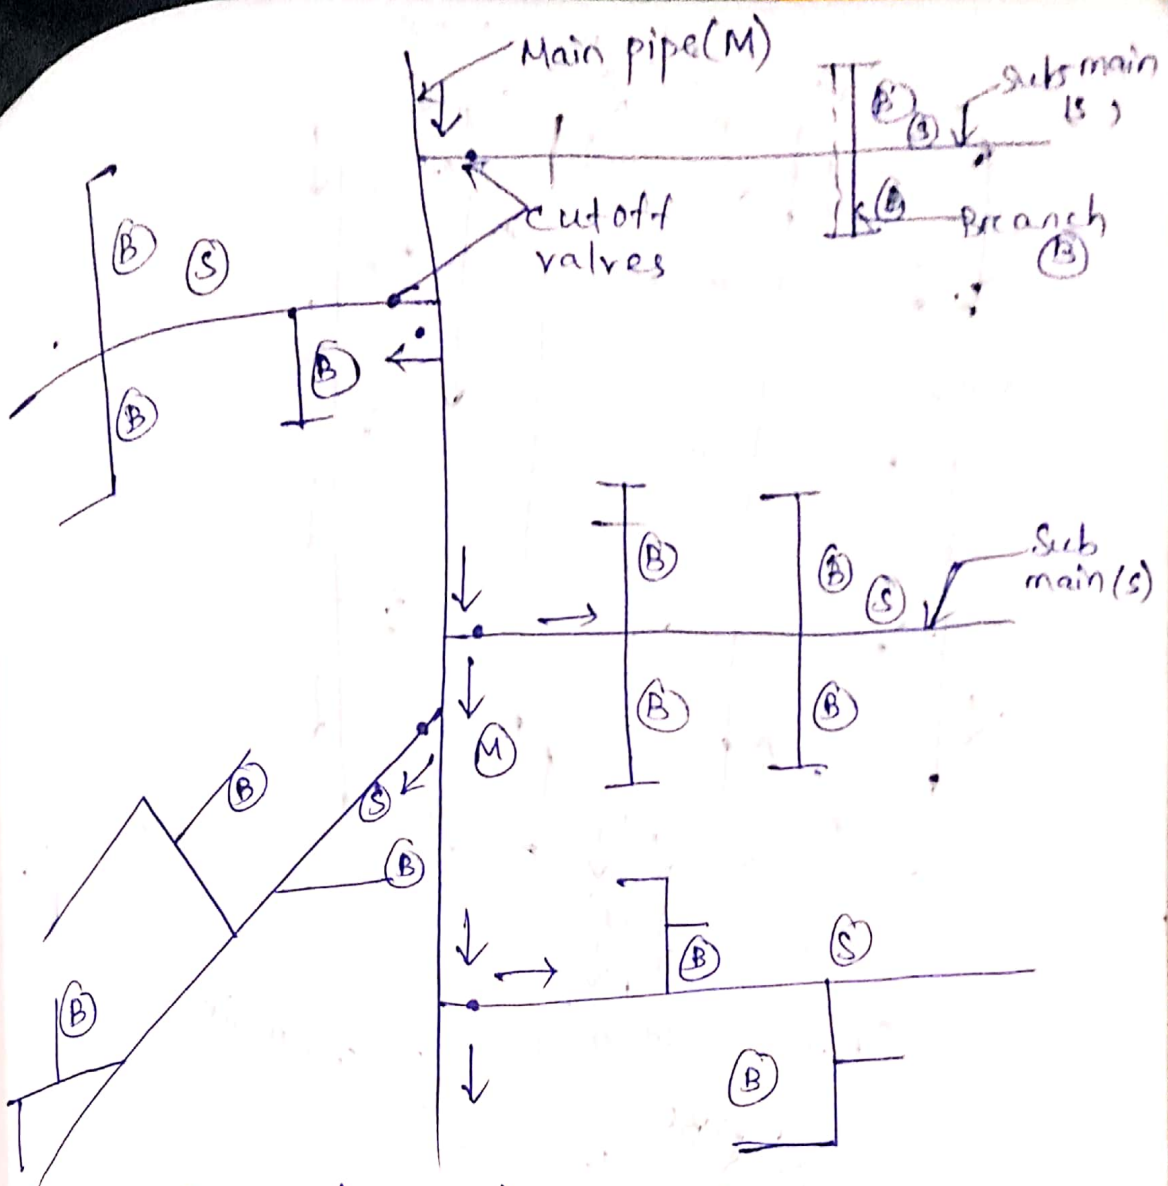 Main pipe(M)
Sub main
(S)
B
B
B
Branch
B
Cutoff
valves
B
S
B
B
Sub
main(s)
B
B
S
B
B
M
B
S
B
B
S
B
B